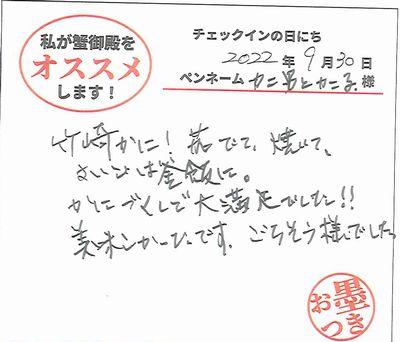 私が蟹御殿を
オススメ
します！
チェックインの日にち
2022年9月30日
ペンネーム カニ男とカニ子様
竹崎かに！茹でて、焼いて、
さいごは釜飯に。
かにづくしで大満足でした!!
美味しかったです。ごちそう様でした
お墨つき